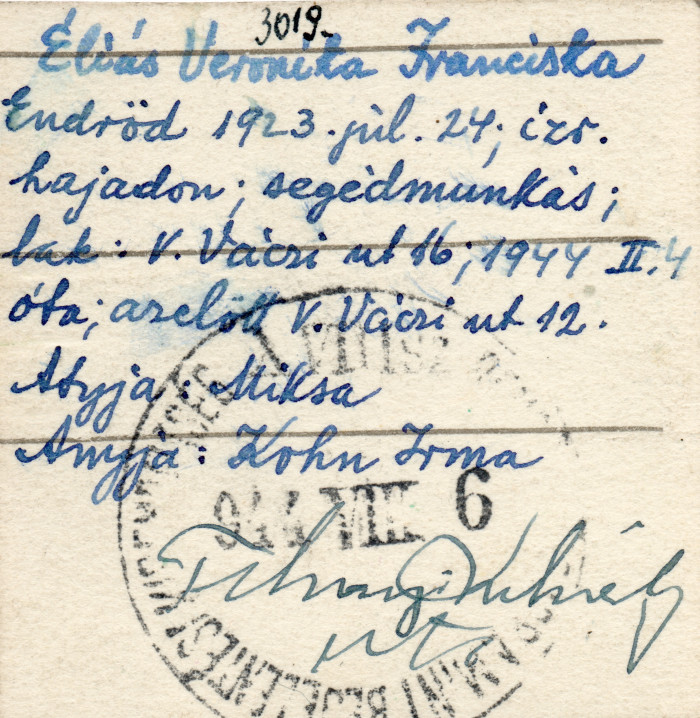 3019.
Éliás Veronika Franciska
Endrőd 1923. júl. 24; izr.
hajadon; segédmunkás;
lak: V. Váczi ut 16; 1944 II. 4
óta; azelőtt V. Váczi ut 12.
Atyja: Miksa
Anyja: Kohn Irma
944 VIII 6